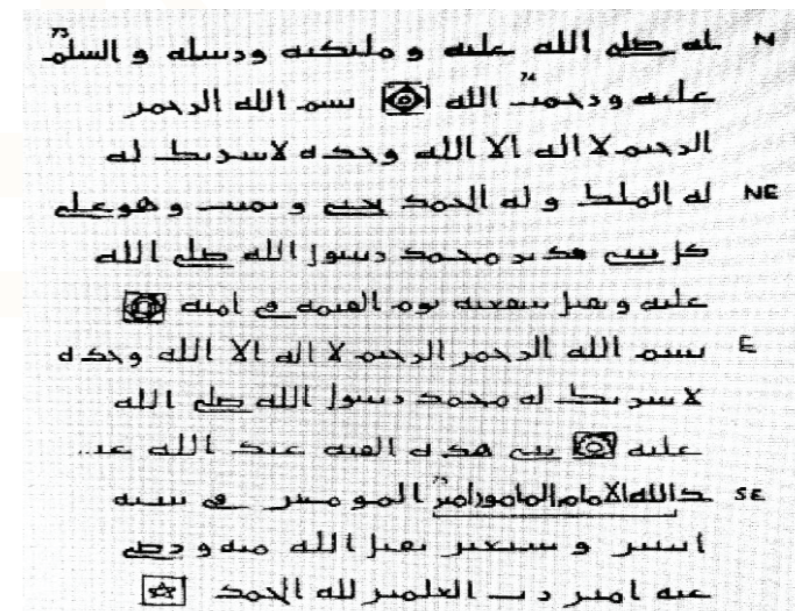 N له صلى الله عليه و ملئكته ورسله و السلم 73
عليه ورحمت 74 الله بسم الله الرحمن
الرحيم لا اله الا الله وحده لا شريك له
NE له الملك و له الحمد يحيي و يميت و هو على
كل شي قدير محمد رسول الله صلى الله
عليه و تقبل شفعته يوم القيمه في امته
E بسم الله الرحمن الرحيم لا اله الا الله وحده
لا شريك له محمد رسول الله صلى الله
عليه بنى هذه القبه عبد الله عبـ..
SE ـد الله الامام المامون امير المومنين في سنه
اثنين و سبعين تقبل الله منه و رضي
عنه امين رب العلمين لله الحمد